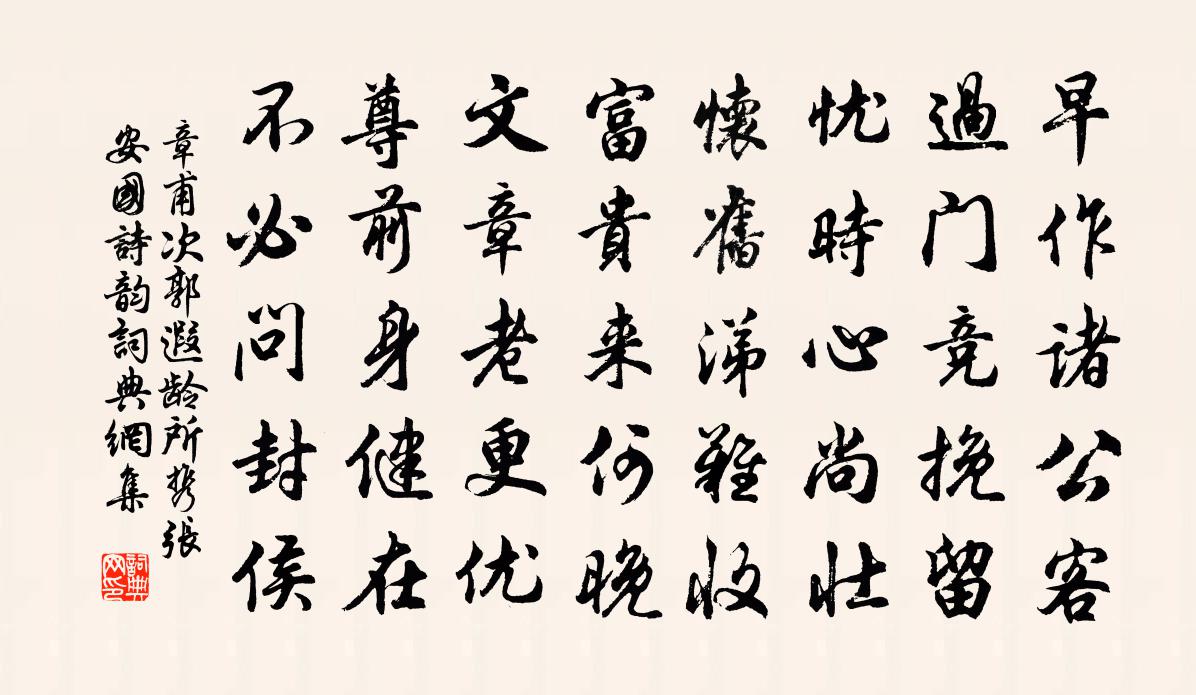 早作諸公客
過门竞挽留
忧時心尚壮
懷舊涕難收
富貴来何晚
文章老更优
尊前身健在
不必问封侯
章甫次郭遐龄所携张
安國詩韵詞典網集
詞典
网印